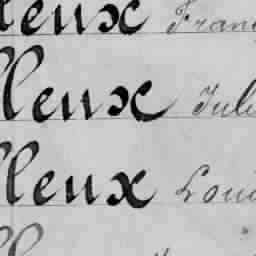 lleux Franç
lleux Jule
lleux Loui